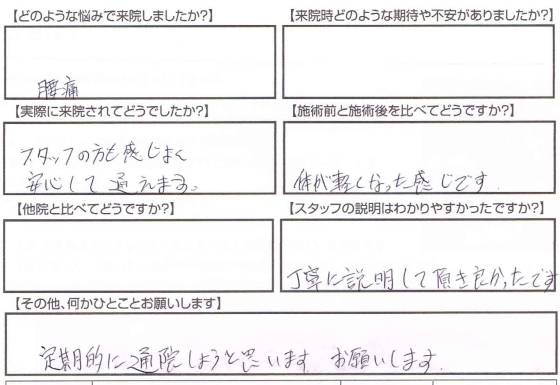 【どのような悩みで来院しましたか?】
腰痛
【来院時どのような期待や不安がありましたか?】
【実際に来院されてどうでしたか?】
スタッフの方も感じよく
安心して通えます。
【施術前と施術後を比べてどうですか?】
体が軽くなった感じです
【他院と比べてどうですか?】
【スタッフの説明はわかりやすかったですか?】
丁寧に説明して頂き良かったです
【その他、何かひとことお願いします】
定期的に通院しようと思います お願いします